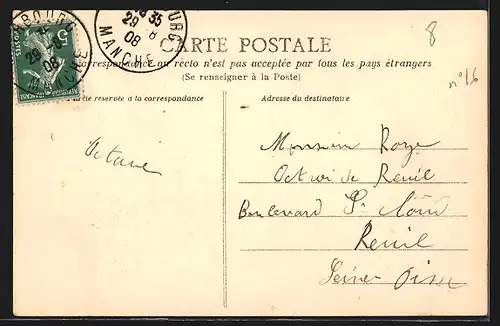 BOURG
35
29 8
08
MANCHE
29
08
5
POSTES
8
CARTE POSTALE
correspondance au recto n'est pas acceptée par tous les pays étrangers
(Se renseigner à la Poste)
n° 16
réservée à la correspondance
Adresse du destinataire
Octave
Monsieur Roze
Octroi de Reuil
Boulevard St Cloud
Reuil
Seine Oise